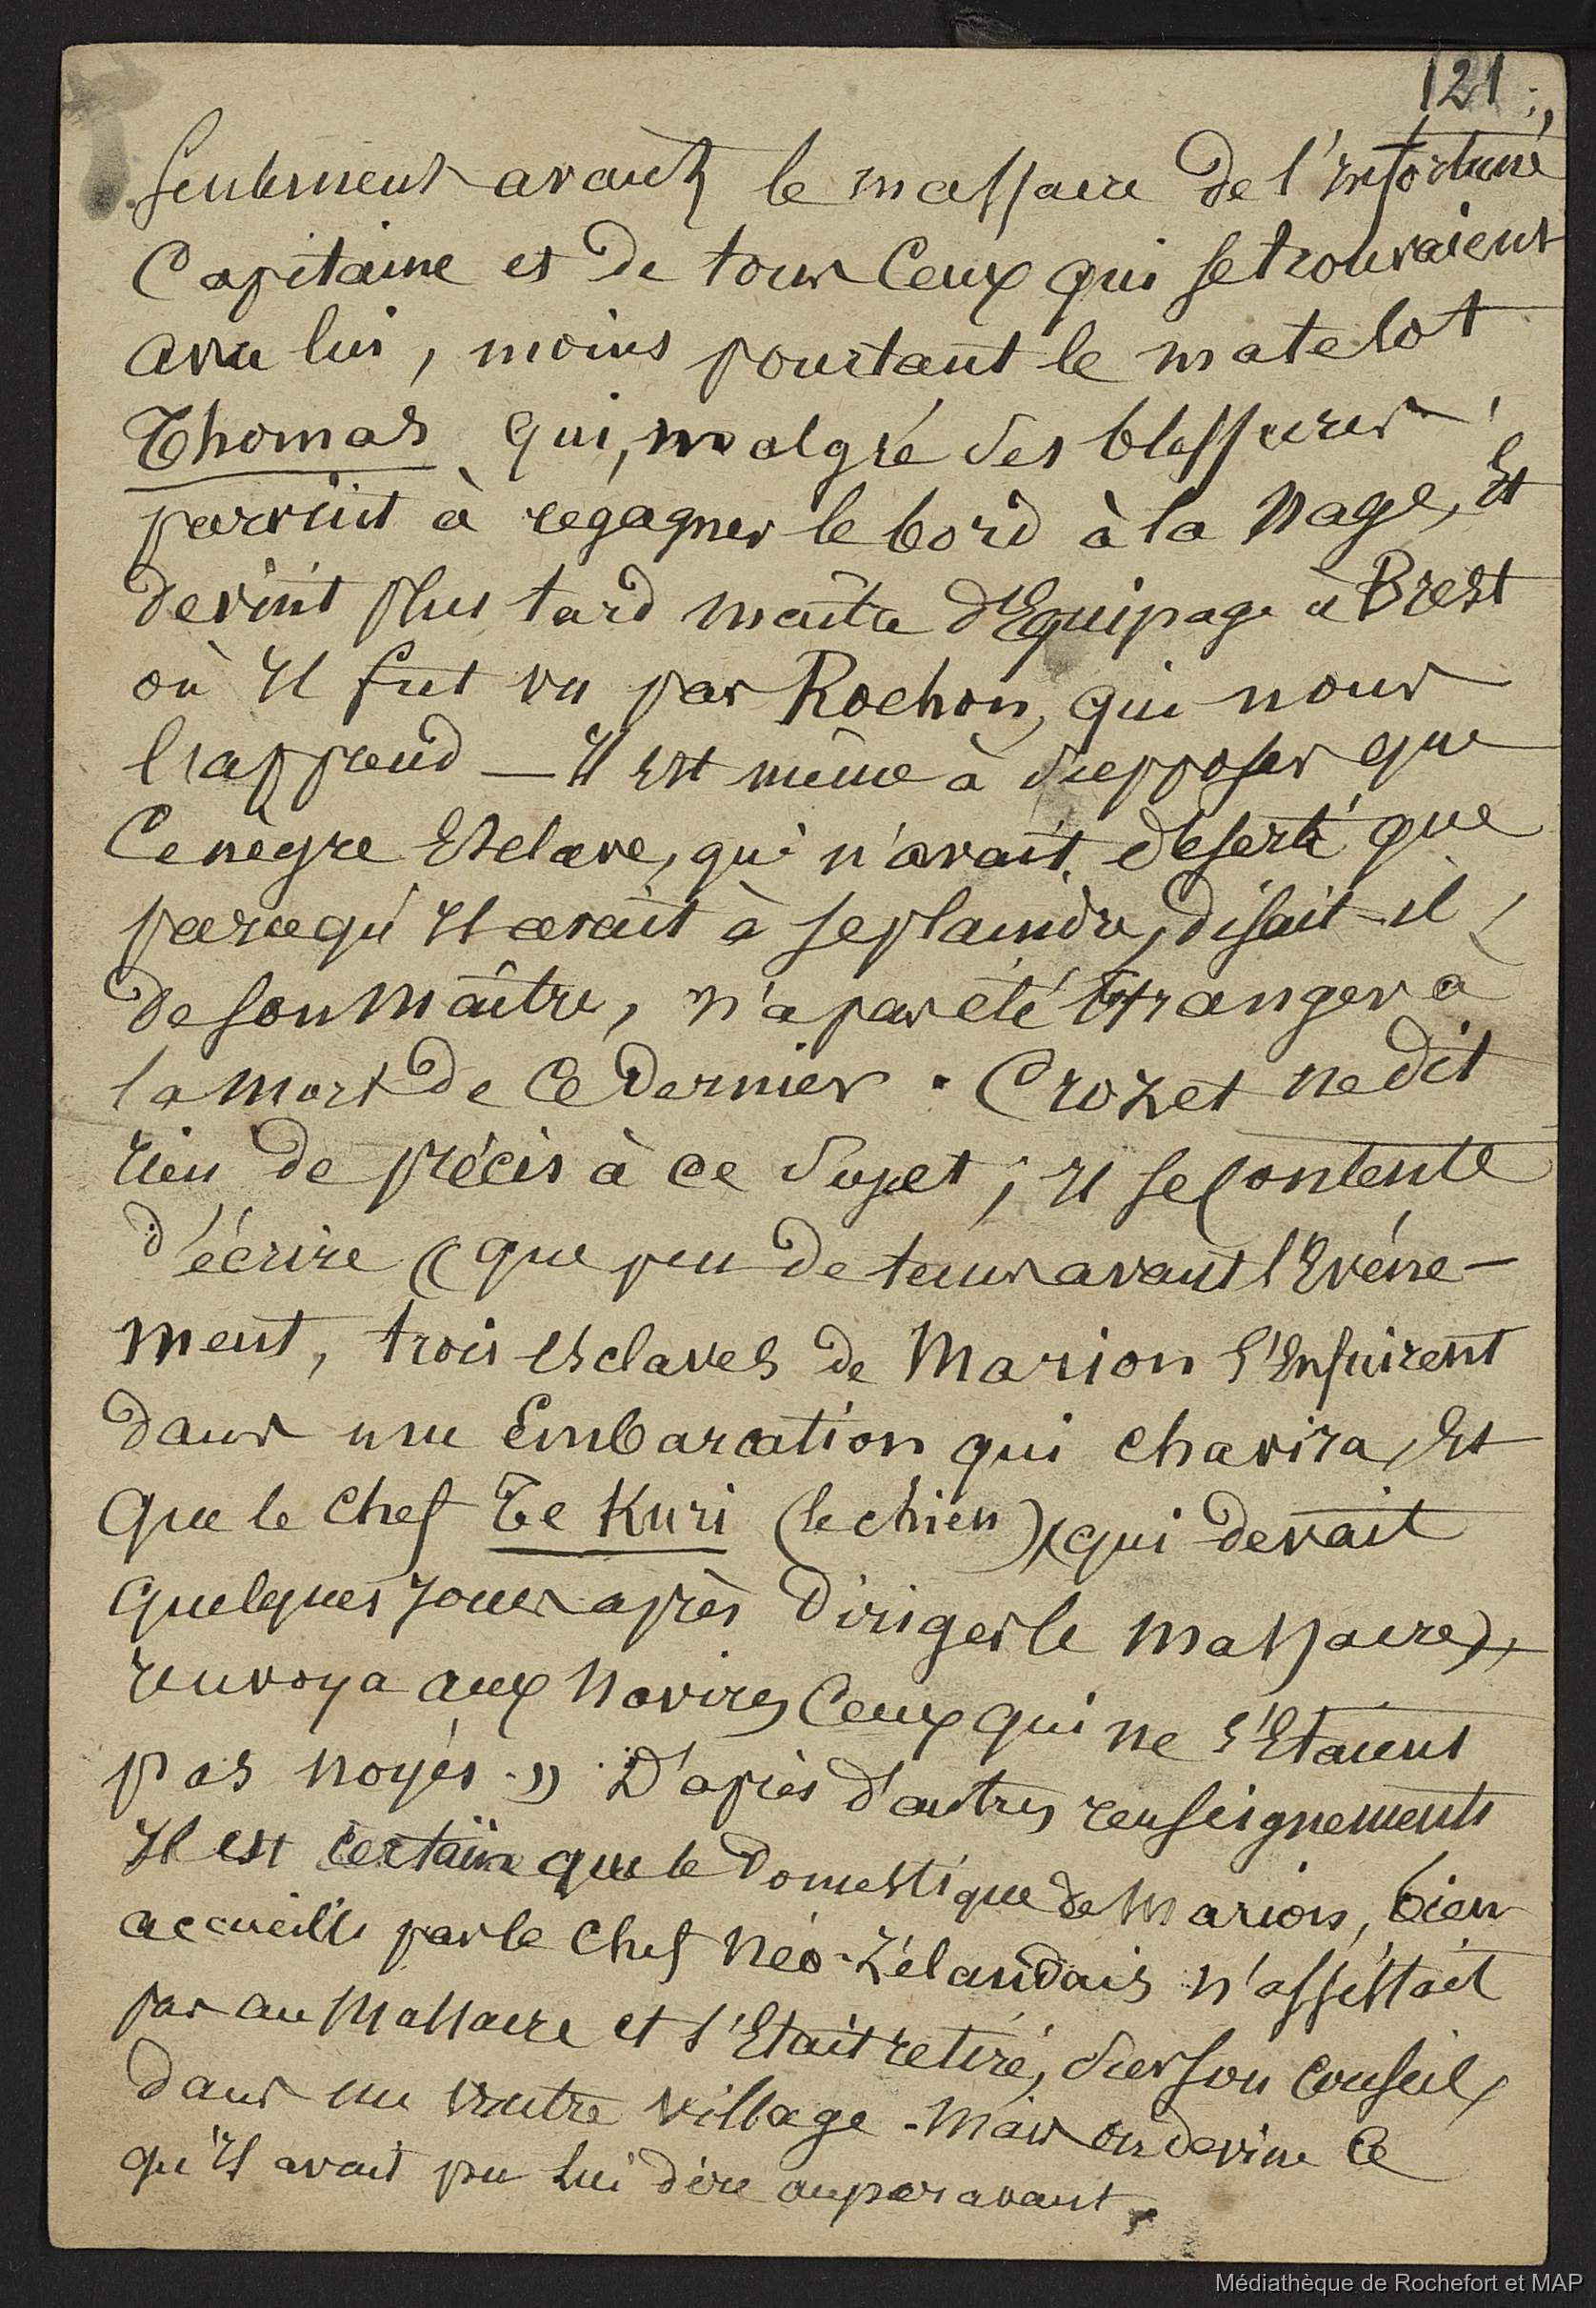 121
seulement avant le massacre de l'infortuné
Capitaine et de tous Ceux qui se trouvaient
avec lui, moins pourtant le matelot
Thomas qui, malgré ses blessures
parvint à regagner le bord à la Nage, Et
devint plus tard maître d'Equipage à Brest
où Il fut vu par Rochon, qui nous
l'apprend — Il est même à supposer que
Ce nègre Esclave, qui n'avait déserté que
parcequ'Il avait à se plaindre, disait-il,
de son Maître, n'a pas été Etranger à
la Mort de Ce dernier. Crozet ne dit
rien de précis à ce sujet ; Il se Contente
d'écrire « que peu de temps avant l'Evéne-
ment, trois Esclaves de Marion s'Enfuirent
dans une Embarcation qui chavira, Et
Que le Chef Te Kuri (le chien) (qui devait
quelques jours après Diriger le Massacre),
renvoya aux Navires Ceux qui ne s'Etaient
pas noyés. » D'après d'autres renseignements
Il est Certain que le Domestique de Marion, bien
accueilli par le Chef Néo-Zélandais n'assistait
pas au Massacre et s'Etait retiré, sur son Conseil,
dans un autre village. Mais on devine Ce
qu'Il avait pu Lui dire auparavant.
Médiathèque de Rochefort et MAP